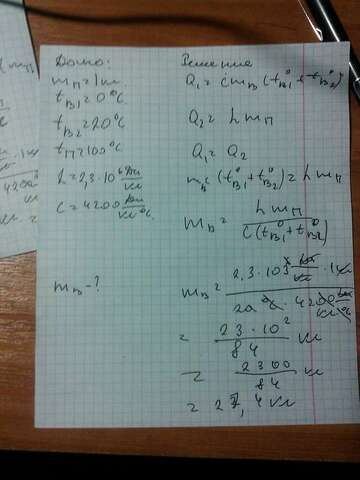 Дано:
mп = 1 кг
t°в1 = 0°C
t°в2 = 20°C
tп = 100°C
L = 2,3·10⁶ Дж/кг
C = 4200 Дж/кг°C
mв - ?
Решение
Q₁ = Cmв (t°в1 + t°в2)
Q₂ = Lmп
Q₁ = Q₂
mвC (t°в1 + t°в2) = Lmп
mв = Lmп / C(t°в1 + t°в2)
mв = 2,3·10 / 20°C · 4200
= 23·10² / 84 кг
= 2300 / 84 кг
= 27,4 кг